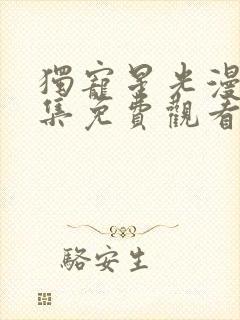 獨寵星光漫
集免費觀看
駱安生